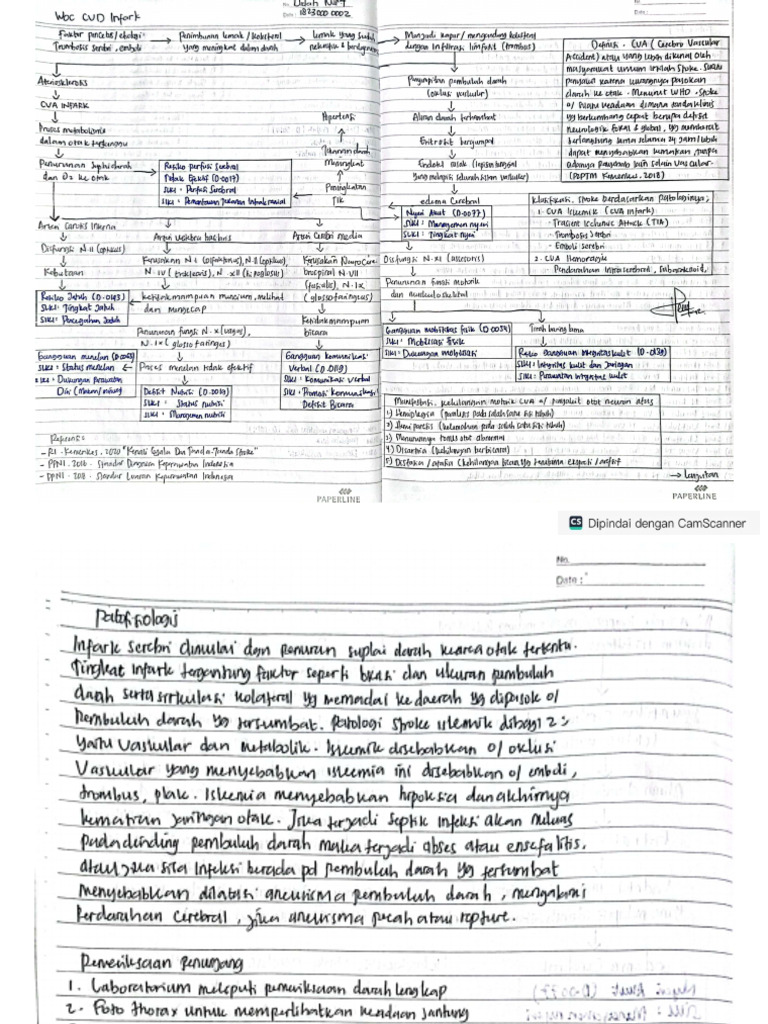 WOC CVD Infark
No.
Date : 1823000002
Faktor pencetus/etiologi
Trombosis serebri, emboli
Penimbunan lemak/kolesterol
yang meningkat dalam darah
Lemak yang sudah
Menjadi kapur/mengandung kolesterol
dengan infiltrasi limfosit (trombus)
Aterosklerosis
CVA INFARK
Proses metabolisme
dalam otak terganggu
Penurunan suplai darah
dan O2 ke otak
Resiko perfusi serebral
tidak efektif (D.0017)
SLKI : Perfusi serebral
SIKI : Pemantauan Tekanan Intrakranial
Hipertensi
Tekanan darah
Meningkat
Peningkatan
TIK
Arteri carotis interna
Arteri vertebra basilaris
Arteri cerebri media
Disfungsi N.II (optikus)
Kebutaan
Resiko Jatuh (D.0143)
SLKI : Tingkat Jatuh
SIKI : Pencegahan Jatuh
Kerusakan N.I (olfaktorius), N.II (optikus),
N.IV (troklearis), N.XII (hipoglosus)
Ketidakmampuan mencium, melihat
dan mengecap
Penurunan fungsi N.X (vagus),
N.IX (glossofaringeus)
Proses menelan tidak efektif
Gangguan menelan (D.0063)
SLKI : Status menelan
SIKI : Dukungan perawatan
Diri (Makan/minum)
Defisit Nutrisi (D.0019)
SLKI : Status nutrisi
SIKI : Manajemen nutrisi
Kerusakan Neurocere
brospinal N.VII
(fasialis), N.IX
(glossofaringeus)
Ketidakmampuan
bicara
Gangguan komunikasi
Verbal (D.0119)
SLKI : Komunikasi verbal
SIKI : Promosi Komunikasi
Defisit Bicara
Referensi
- RI. Kemenkes. 2020 "Kenali Gejala Dan Tanda-Tanda Stroke"
- PPNI. 2016. Standar Diagnosa Keperawatan Indonesia
- PPNI. 2018. Standar Luaran Keperawatan Indonesia
PAPERLINE
Penyempitan pembuluh darah
(oklusi vaskuler)
Aliran darah terhambat
Eritrosit bergumpal
Endotel rusak
edema cerebral
Nyeri Akut (D.0077)
SIKI : Manajemen nyeri
SLKI : Tingkat Nyeri
Disfungsi N.XI (assesoris)
Penurunan fungsi motorik
dan muskuloskeletal
Gangguan mobilitas fisik (D.0054)
SLKI : Mobilitas fisik
SIKI : Dukungan mobilisasi
Tirah baring lama
Resiko gangguan integritas kulit (D.0139)
SLKI : Integritas kulit dan jaringan
SIKI : Perawatan integritas kulit
Definisi : CVA (Cerebro Vascular
Accident) atau yang lebih dikenal oleh
masyarakat umum istilah Stroke. Suatu
penyakit karena kurangnya pasokan
darah ke otak. Menurut WHO, stroke
neurologik fokal & global, yg memberat
berlangsung lama selama 24 jam/lebih
adanya penyebab lain selain vaskular.
(P2PTM Kemenkes, 2018)
Klasifikasi, stroke berdasarkan Patologinya;
1. CVA Iskemik (CVA infark)
- Trasient Ischemic Attack (TIA)
- Trombosis Serebri
- Emboli serebri
2. CVA Hemoragik
- Pendarahan Intraserebral, Subaraknoid,
Manifestasi : Kehilangan motorik
1) Hemiplegia (paralisis pada salah satu sisi tubuh)
2) Hemiparesis (kelemahan pada salah satu sisi tubuh)
3) Menurunnya tonus otot abnormal
4) Disartria (kehilangan berbicara)
Lanjutan
PAPERLINE
CS Dipindai dengan CamScanner
No.
Date :
Patofisiologis
Infark serebri dimulai dgn penuran suplai darah
Tingkat infark tergantung faktor seperti lokasi dan ukuran pembuluh
darah serta sirkulasi kolateral yg memadai ke daerah yg dipasok o/
Pembuluh darah yg tersumbat. Patologi stroke iskemik dibagi 2 :
yaitu vaskular dan metabolik. Iskemik disebabkan o/ oklusi
Vaskular yang menyebabkan iskemia ini disebabkan o/ emboli,
trombus, plak. Iskemia menyebabkan hipoksia dan akhirnya
kematian jaringan otak. Jika terjadi septik infeksi akan meluas
pada dinding pembuluh darah maka terjadi abses atau ensefalitis.
atau jika sisa Infeksi berada pd pembuluh darah yg tersumbat
menyebabkan dilatasi aneurisma pembuluh darah, mengalami
Perdarahan Cerebral, jika aneurisma pecah atau rupture.
Pemeriksaan Penunjang
1. Laboratorium meliputi pemeriksaan darah lengkap
2. Foto thorax untuk memperlihatkan keadaan jantung